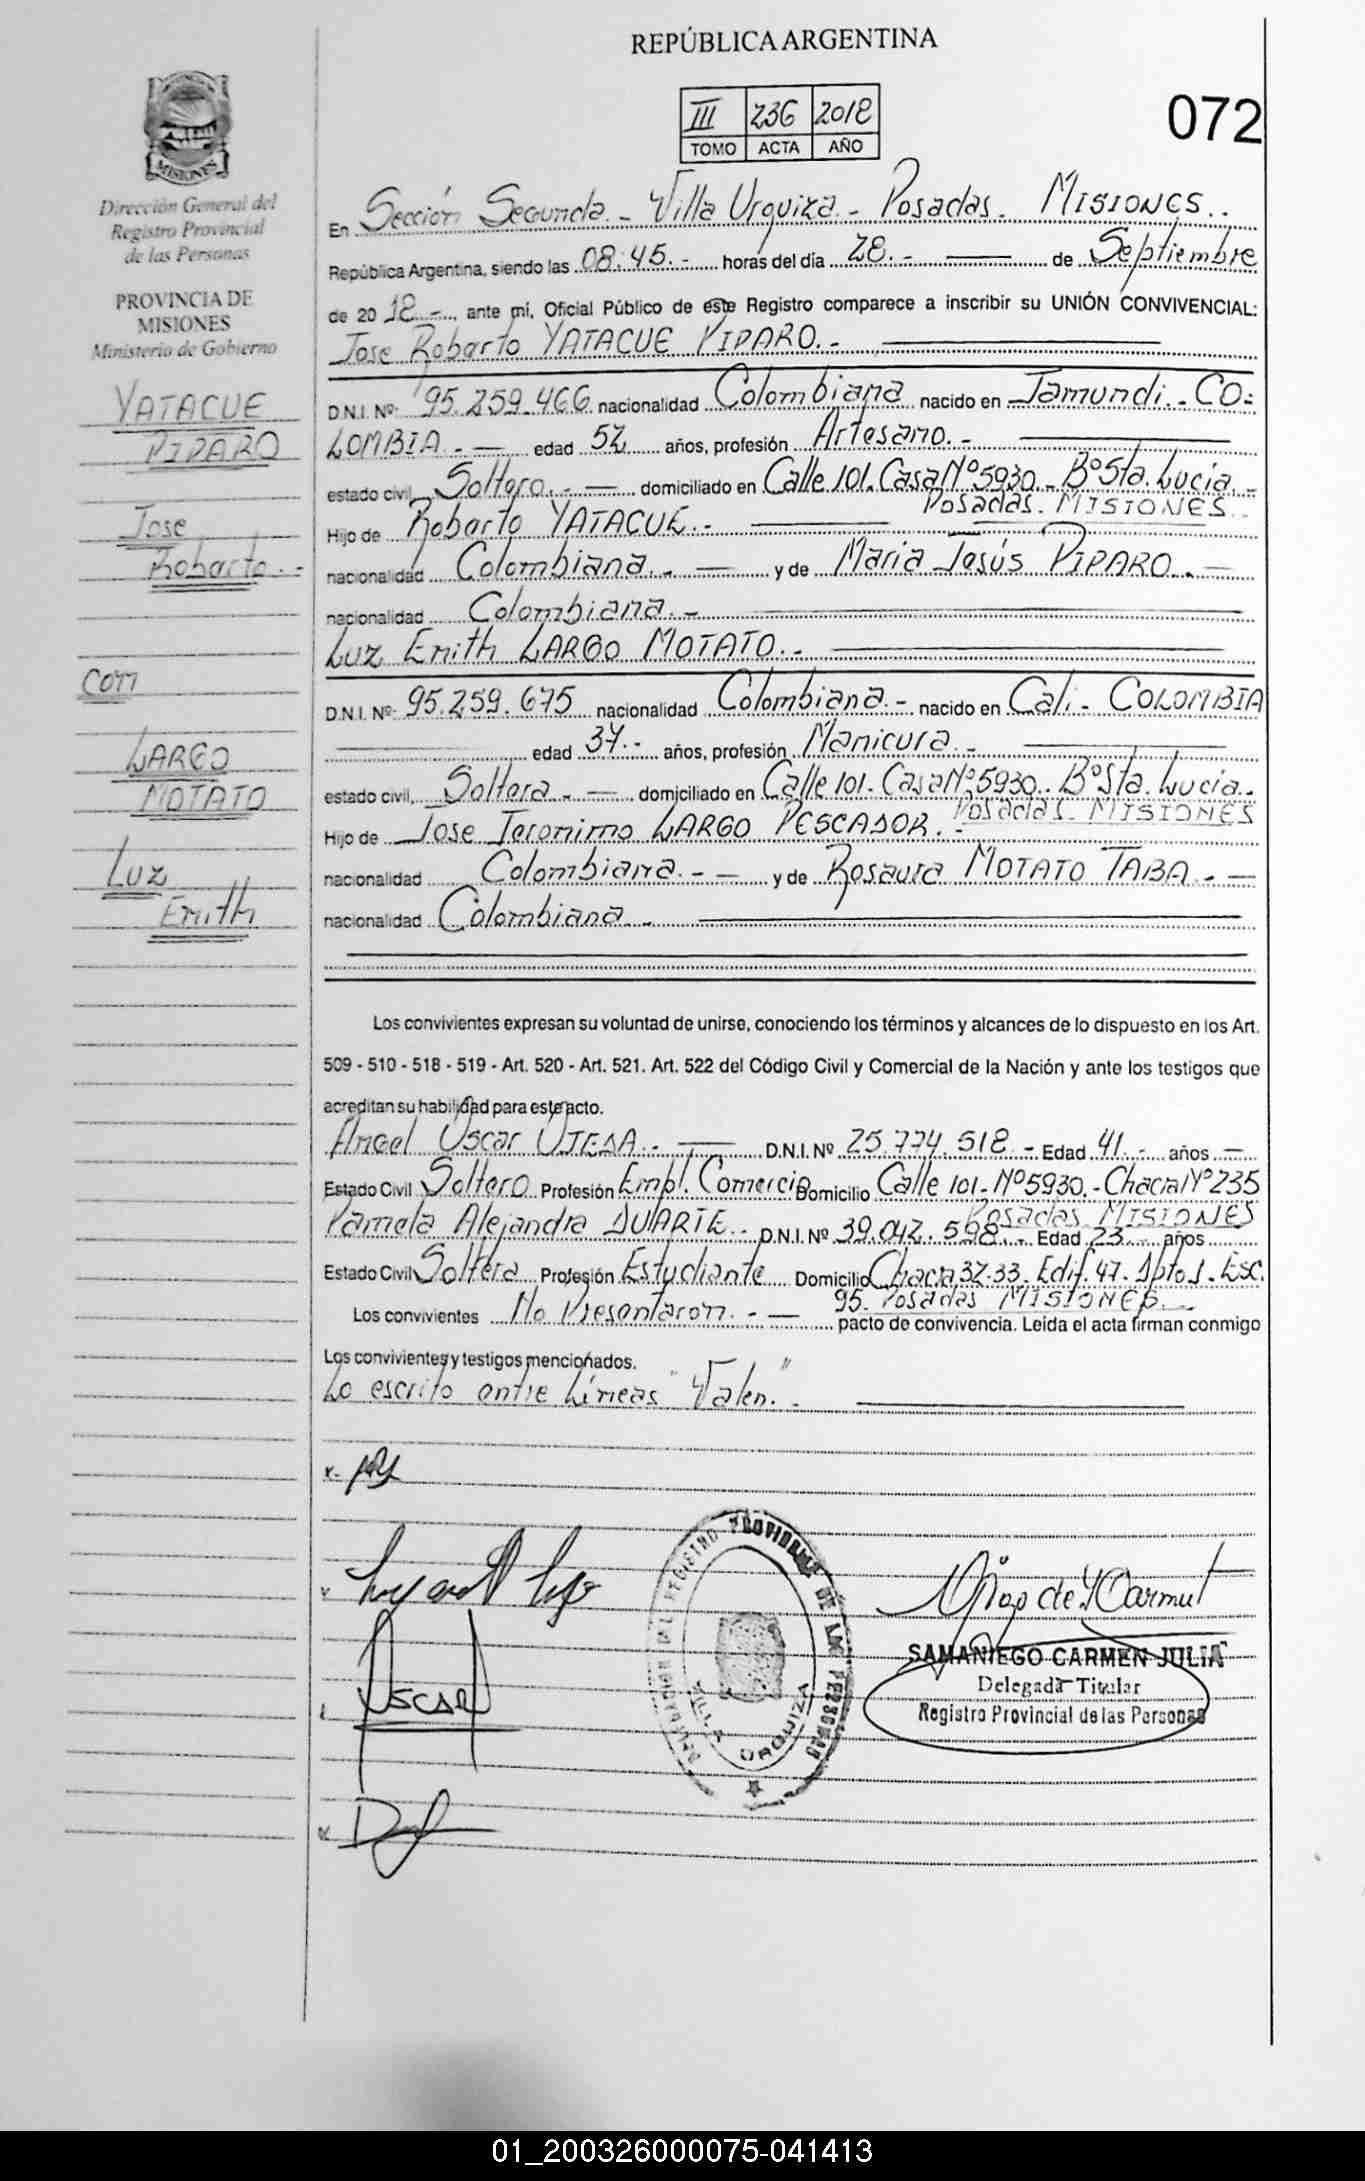 REPÚBLICA ARGENTINA
III 236 2018
TOMO ACTA AÑO
072
MISIONES
Dirección General del
Registro Provincial
de las Personas
PROVINCIA DE
MISIONES
Ministerio de Gobierno
YATACUE
PIPARO
Jose
Roberto.-
con
LARGO
MOTATO
Luz
Emith
En Sección Segunda.- Villa Urquiza.- Posadas. MISIONES..
República Argentina, siendo las 08:45.- horas del día 28.- de Septiembre
de 20 18.-, ante mi, Oficial Público de este Registro comparece a inscribir su UNIÓN CONVIVENCIAL:
Jose Roberto YATACUE PIPARO.-
D.N.I. Nº 95.259.466 nacionalidad Colombiana nacido en Jamundi.- CO-
LOMBIA.- edad 52 años, profesión Artesano.-
estado civil, Soltero.- domiciliado en Calle 101. Casa Nº 5930.- Bº Sta. Lucía.-
Posadas. MISIONES.-
Hijo de Roberto YATACUE.-
nacionalidad Colombiana.- y de Maria Jesús PIPARO.-
nacionalidad Colombiana.-
Luz Emith LARGO MOTATO.-
D.N.I. Nº 95.259.675 nacionalidad Colombiana.- nacido en Cali.- COLOMBIA
edad 37.- años, profesión Manicura.-
estado civil, Soltera.- domiciliado en Calle 101. Casa Nº 5930.. Bº Sta. Lucia..
Posadas. MISIONES
Hijo de Jose Jeronimo LARGO PESCADOR.-
nacionalidad Colombiana.- y de Rosaura MOTATO TABA.-
nacionalidad Colombiana.-
Los convivientes expresan su voluntad de unirse, conociendo los términos y alcances de lo dispuesto en los Art.
509 - 510 - 518 - 519 - Art. 520 - Art. 521. Art. 522 del Código Civil y Comercial de la Nación y ante los testigos que
acreditan su habilidad para este acto.
Angel Oscar OJEDA.- D.N.I. Nº 25.774.518.- Edad 41.- años
Estado Civil Soltero Profesión Empl. Comercio Domicilio Calle 101- Nº 5930.- Chacra Nº 235
Posadas MISIONES
Pamela Alejandra DUARTE.. D.N.I. Nº 39.042.598.- Edad 23 años
Estado Civil Soltera Profesión Estudiante Domicilio Chacra 32-33. Edif. 47. Dpto 1. Esc.
95. Posadas MISIONES.
Los convivientes No Presentaron.- pacto de convivencia. Leída el acta firman conmigo
Los convivientes y testigos mencionados.
Lo escrito entre Líneas "Valen."-
OSCAR
DELEGACION DEL REGISTRO PROVINCIAL DE LAS PERSONAS
VILLA URQUIZA
SAMANIEGO CARMEN JULIA
Delegada Titular
Registro Provincial de las Personas
01_200326000075-041413